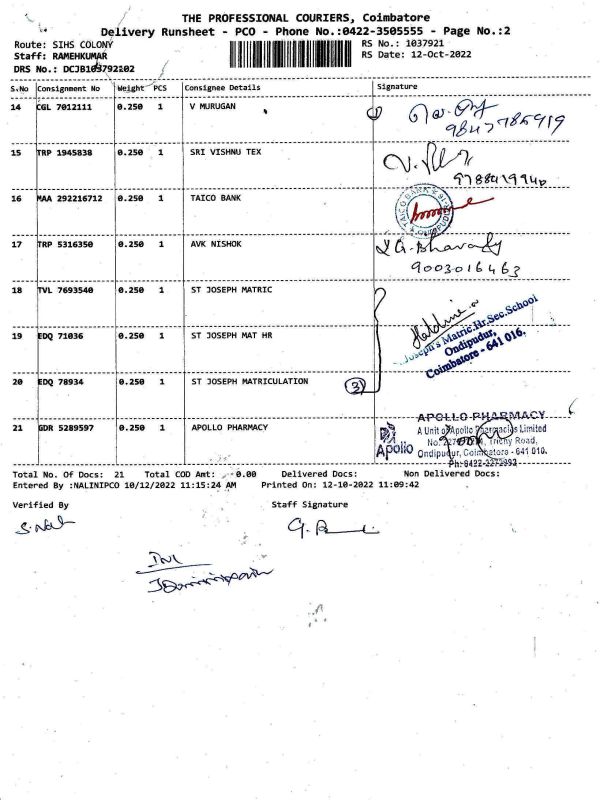 THE PROFESSIONAL COURIERS, Coimbatore
Delivery Runsheet - PCO - Phone No.:0422-3505555 - Page No.:2
Route: SIHS COLONY
RS No.: 1037921
Staff: RAMEHKUMAR
RS Date: 12-Oct-2022
DRS No.: DCJB103792102
S.No Consignment No Weight PCS Consignee Details Signature
14 CGL 7012111 0.250 1 V MURUGAN
9847785919
15 TRP 1945838 0.250 1 SRI VISHNU TEX
16 MAA 292216712 0.250 1 TAICO BANK
TAICO BANK
17 TRP 5316350 0.250 1 AVK NISHOK
9003016463
18 TVL 7693540 0.250 1 ST JOSEPH MATRIC
19 EDQ 71036 0.250 1 ST JOSEPH MAT HR
Joseph's Matric.Hr.Sec.School
Ondipudur,
Coimbatore - 641 016.
20 EDQ 78934 0.250 1 ST JOSEPH MATRICULATION 3)
21 GDR 5289597 0.250 1 APOLLO PHARMACY
Apollo
APOLLO PHARMACY
A Unit of Apollo Pharmacies Limited
Trichy Road,
Ondipudur, Coimbatore - 641 016.
Ph:0422-2272993
Total No. Of Docs: 21 Total COD Amt: 0.00 Delivered Docs: Non Delivered Docs:
Entered By :NALINIPCO 10/12/2022 11:15:24 AM Printed On: 12-10-2022 11:09:42
Verified By Staff Signature